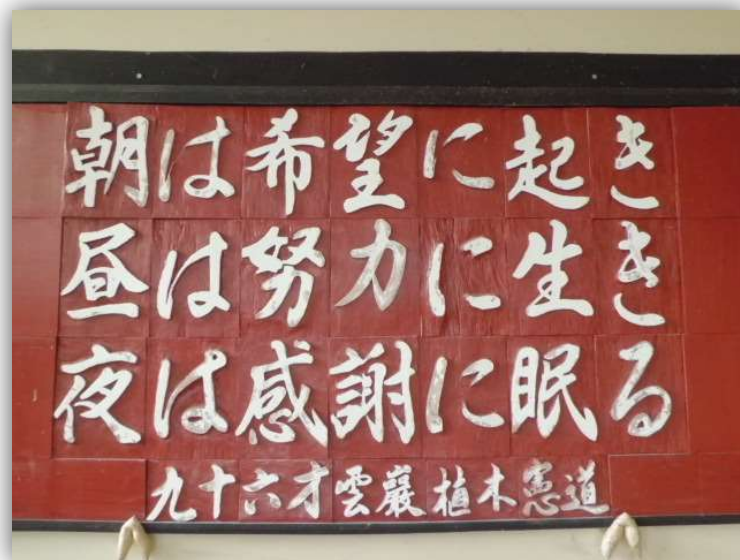 朝は希望に起き
昼は努力に生き
夜は感謝に眠る
九十六才雲巖植木憲道